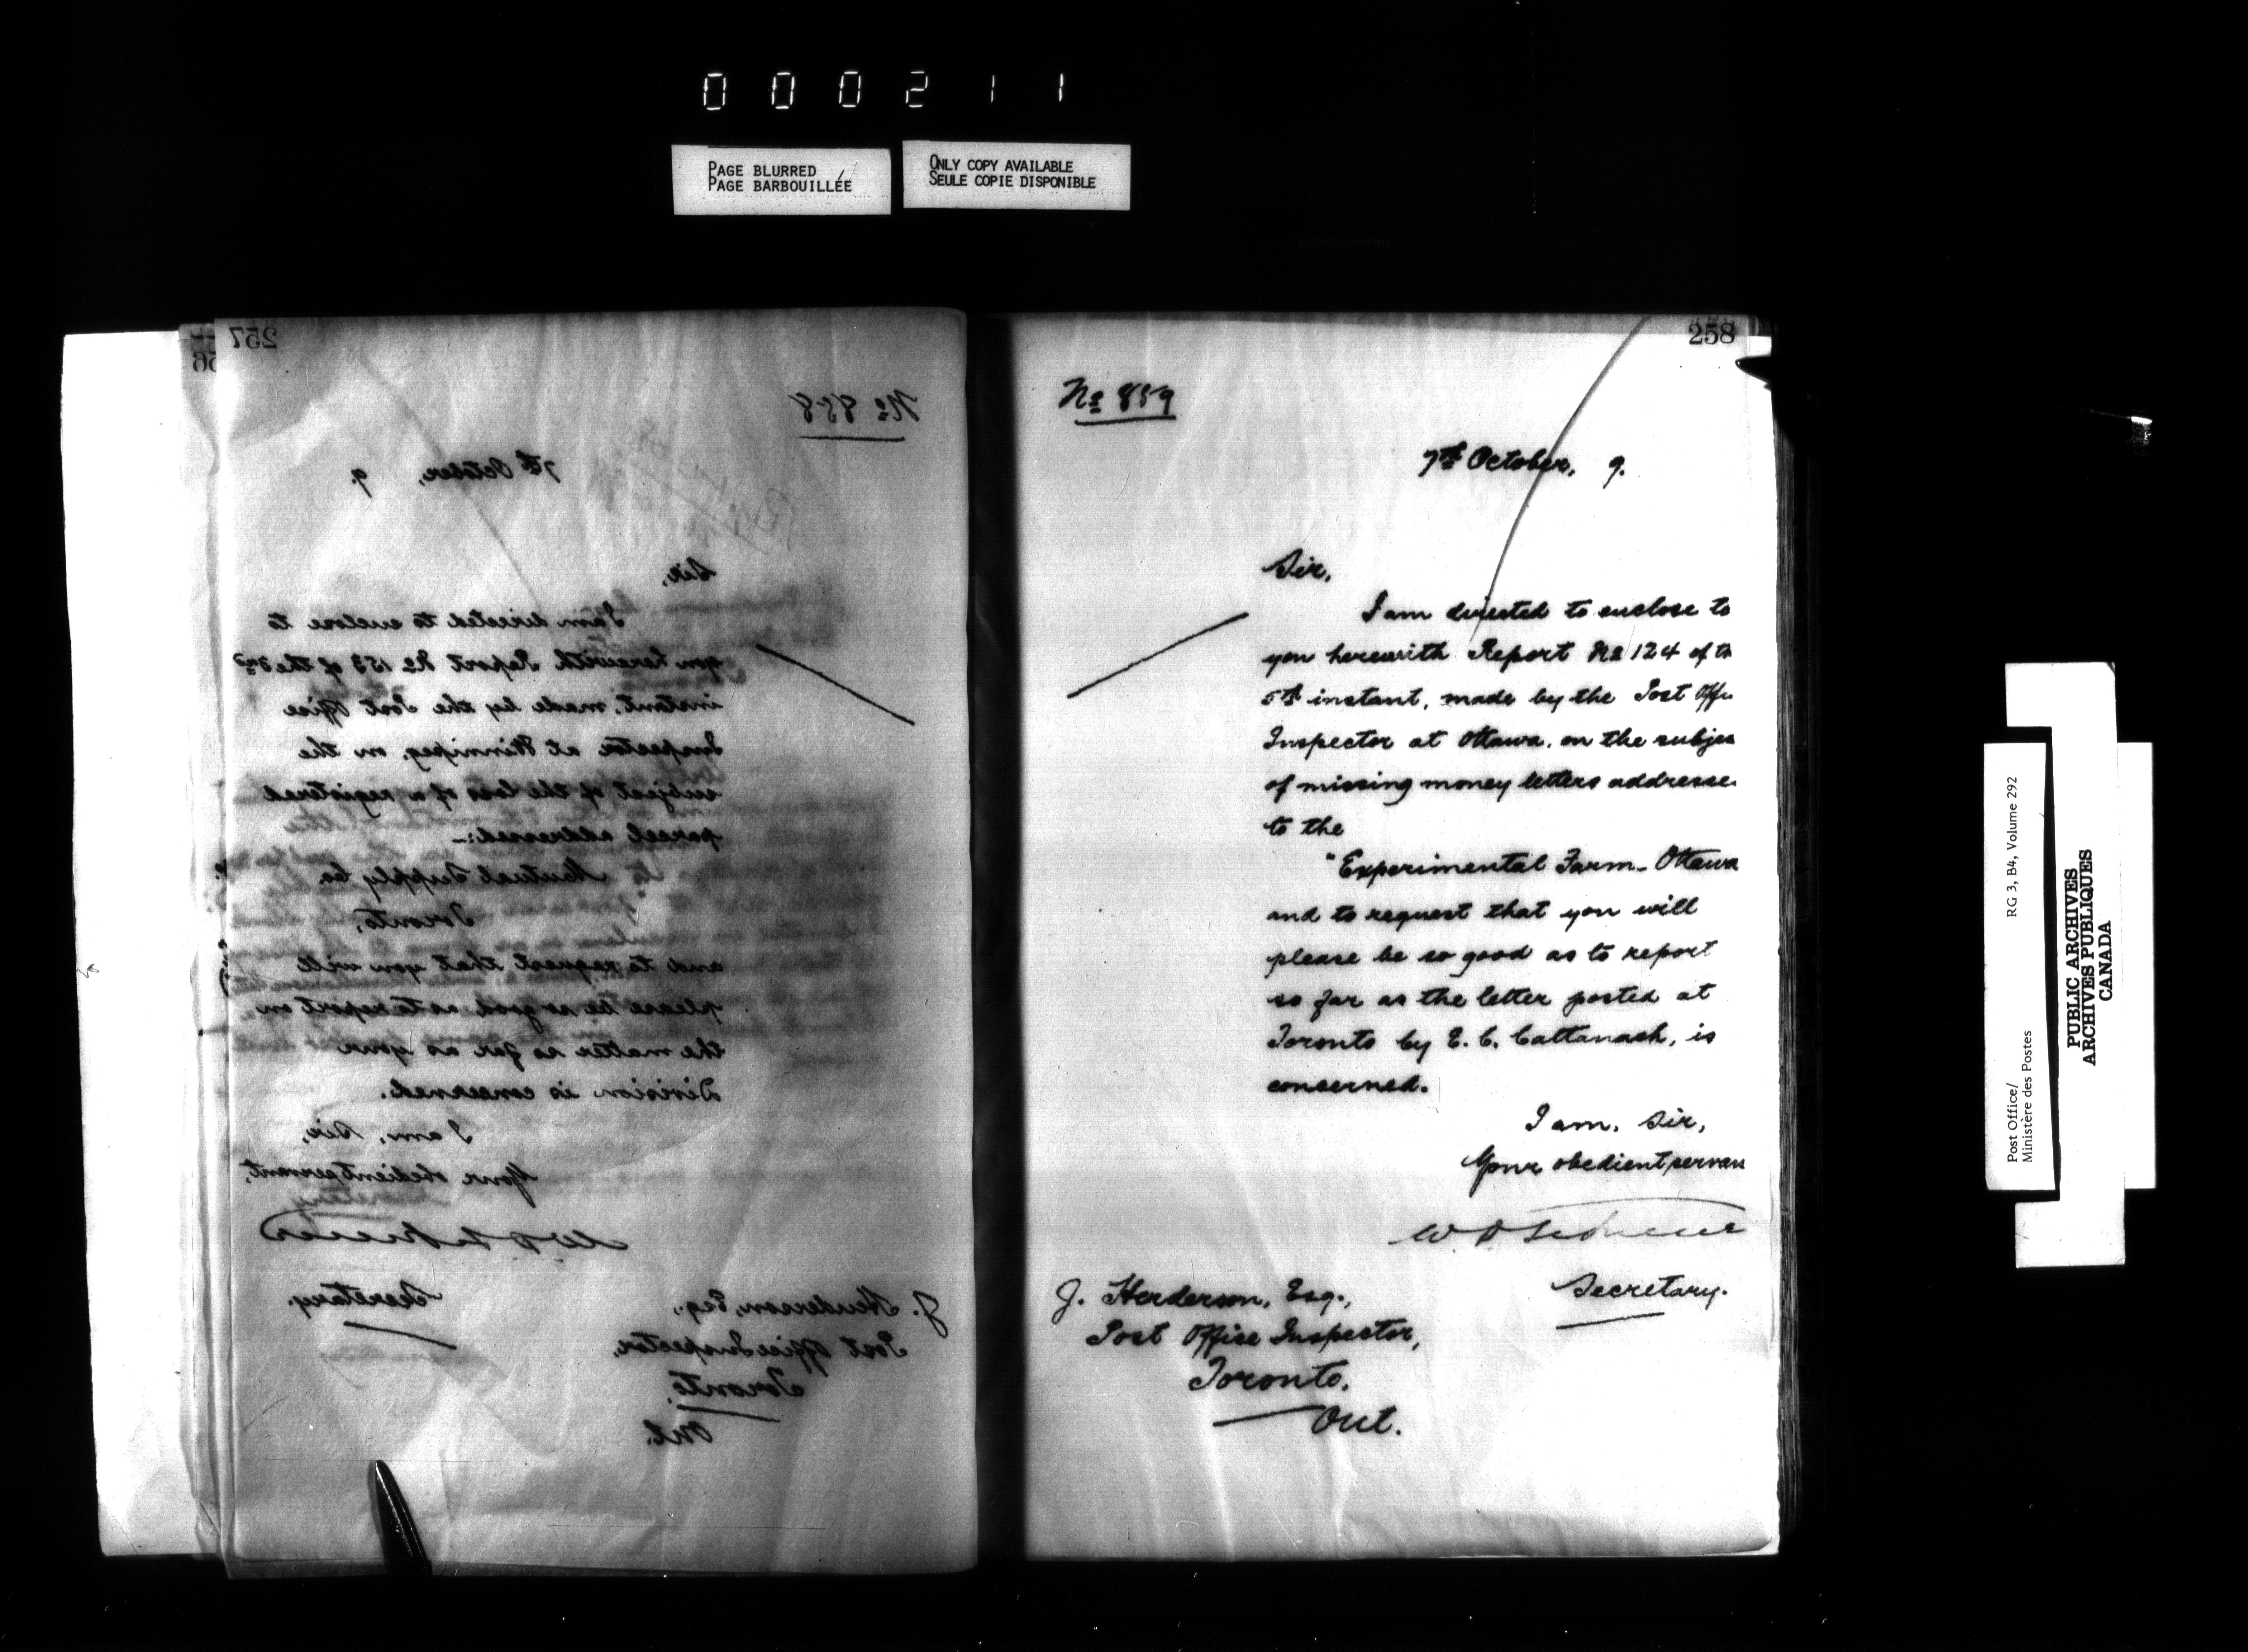 000211
PAGE BLURRED
PAGE BARBOUILLÉE
ONLY COPY AVAILABLE
SEULE COPIE DISPONIBLE
257
No 858
7th October, 9.
Sir,
I am directed to enclose to
you herewith Report No 153 of the
instant, made by the Post Office
Inspector at Winnipeg, on the
subject of the loss of a registered
parcel addressed:-
Mutual Supply Co.
Toronto,
and to request that you will
please be so good as to report on
the matter so far as your
Division is concerned.
I am, Sir,
Your obedient servant,
Secretary.
J. Henderson, Esq.,
Post Office Inspector,
Toronto,
Ont.
258
No 859
7th October, 9.
Sir,
I am directed to enclose to
you herewith Report No 124 of th
5th instant, made by the Post Offi
Inspector at Ottawa, on the subjec
of missing money letters addresse
to the
"Experimental Farm - Ottawa
and to request that you will
please be so good as to report
so far as the letter posted at
Toronto by E. C. Cattanach, is
concerned.
I am, Sir,
Your obedient servan
Secretary.
J. Henderson, Esq.,
Post Office Inspector,
Toronto,
Ont.
Post Office/
Ministère des Postes
RG 3, B4, Volume 292
PUBLIC ARCHIVES
ARCHIVES PUBLIQUES
CANADA